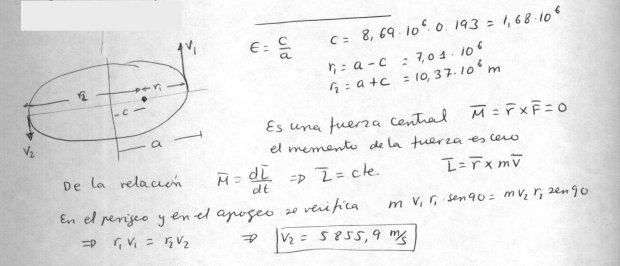 ϵ = c/a    c = 8,69·10⁶·0.193 = 1,68·10⁶
r₁ = a - c = 7,01·10⁶
r₂ = a + c = 10,37·10⁶ m
V₁
r₂ r₁
c
a
V₂
Es una fuerza central M̄ = r̄ x F̄ = 0
el momento de la fuerza es cero
De la relación M̄ = dL̄/dt ⇒ L̄ = cte. L̄ = r̄ x mv̄
En el perigeo y en el apogeo se verifica m v₁ r₁·sen90 = m v₂ r₂ sen90
⇒ r₁ v₁ = r₂ v₂ ⇒ V₂ = 5855,9 m/s